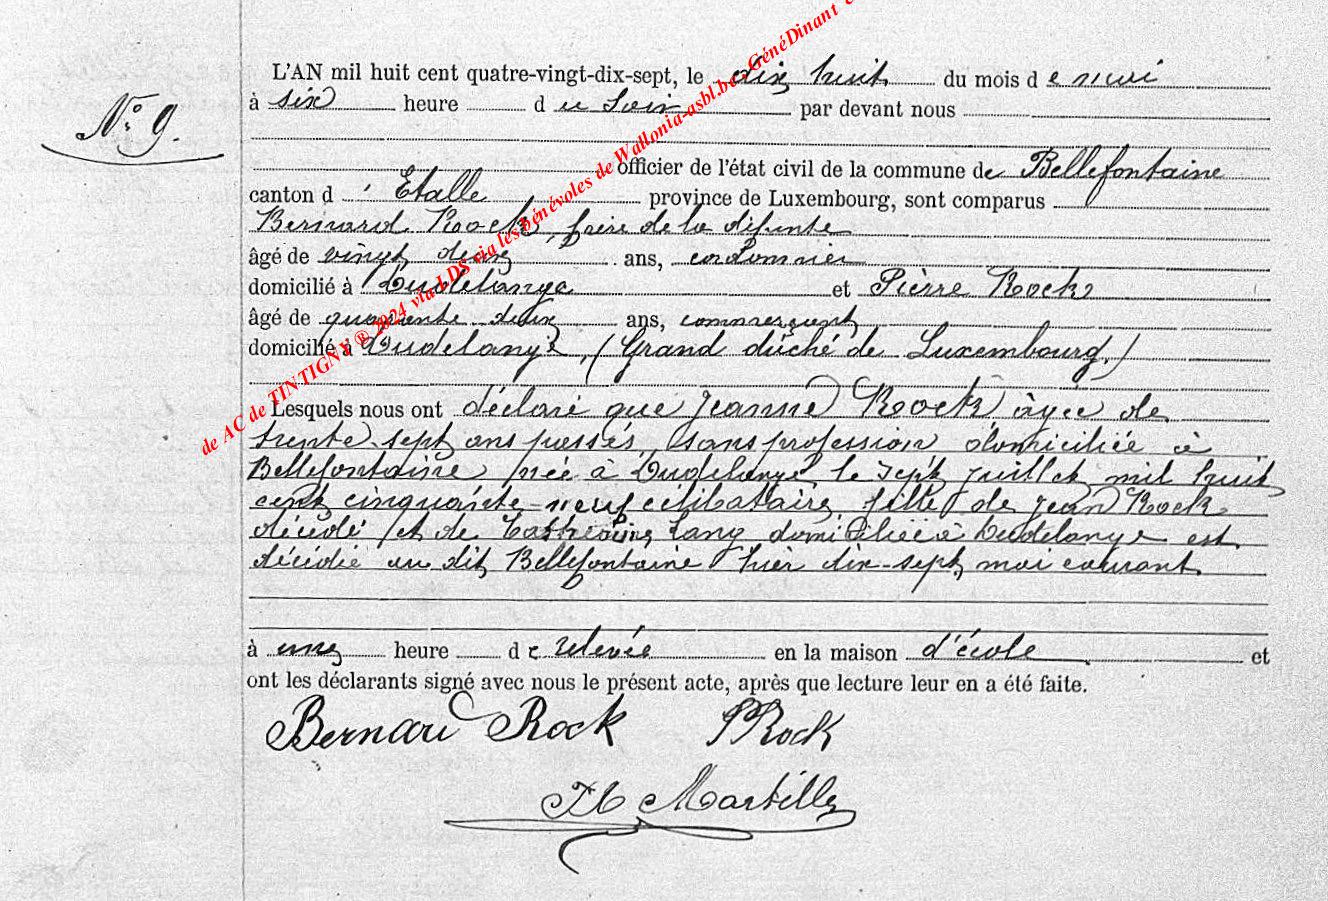 N° 9.
L'AN mil huit cent quatre-vingt-dix-sept, le dix huit du mois de mai
à six heure du soir par devant nous
officier de l'état civil de la commune de Bellefontaine
canton d'Etalle province de Luxembourg, sont comparus
Bernard Rock, frère de la défunte
âgé de vingt deux ans, cordonnier
domicilié à Dudelange et Pièrre Rock
âgé de quarante deux ans, commerçant
domicilié à Dudelange, (Grand duché de Luxembourg.)
Lesquels nous ont déclaré que Jeanne Rock âgée de
trente sept ans passés, sans profession domiciliée à
Bellefontaine, née à Dudelange le sept juillet mil huit
cent cinquante-neuf célibataire, fille de Jean Rock
décédé et de Catherine Lang domiciliée à Dudelange est
décédée au dit Bellefontaine hier dix-sept mai courant
à une heure de relevée en la maison d'école et
ont les déclarants signé avec nous le présent acte, après que lecture leur en a été faite.
Bernard Rock PRock
Martilly
de AC de TINTIGNY® 2024 via LDS via les bénévoles de Wallonia-asbl.be - GénéDinant